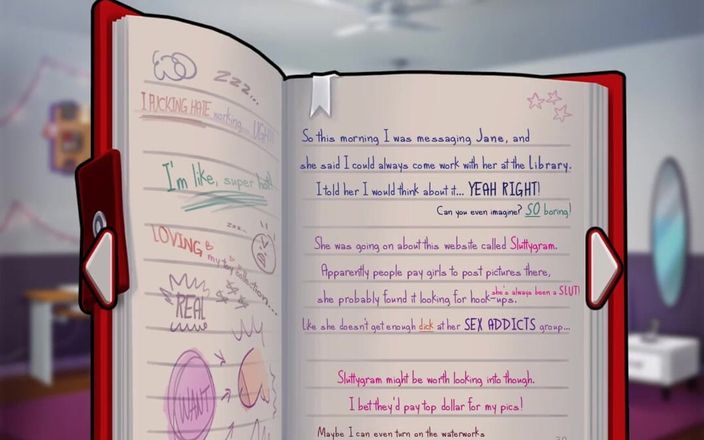 zzz...
I FUCKING HATE working... UGH!
I'm like, super hot!
zzz...
LOVING
my toy collection...
REAL
WANT
So this morning I was messaging Jane, and
she said I could always come work with her at the Library.
I told her I would think about it... YEAH RIGHT!
Can you even imagine? SO boring!
She was going on about this website called Sluttygram.
Apparently people pay girls to post pictures there,
she's always been a SLUT!
she probably found it looking for hook-ups.
Like she doesn't get enough dick at her SEX ADDICTS group...
Sluttygram might be worth looking into though.
I bet they'd pay top dollar for my pics!
Maybe I can even turn on the waterworks